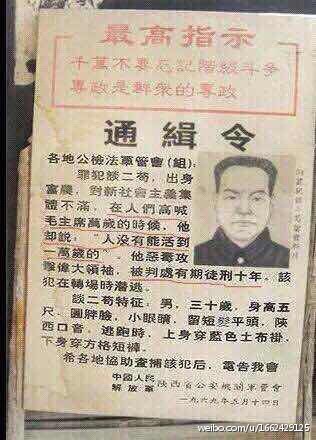 最高指示
千萬不要忘記階級斗争
專政是群衆的專政
通緝令
各地公檢法軍管會(組):
罪犯談二苟,出身
富農,對新社會主義集
體不滿,在人們高喊
毛主席萬歲的時候,他
却説:“人没有能活到
一萬歲的”,他惡毒攻
擊偉大領袖,被判處有期徒刑十年,該
犯在轉場時潛逃。
談二苟特征:男,三十歲,身高五
尺,圓胖臉,小眼睛,留短髮平頭,陝
西口音,逃跑時,上身穿藍色土布褂,
下身穿方格短褲。
希各地協助查捕該犯后,電告我會
中國人民
解放軍 陝西省公安機關軍管會
一九六九年五月十四日
weibo.com/u/1662429125